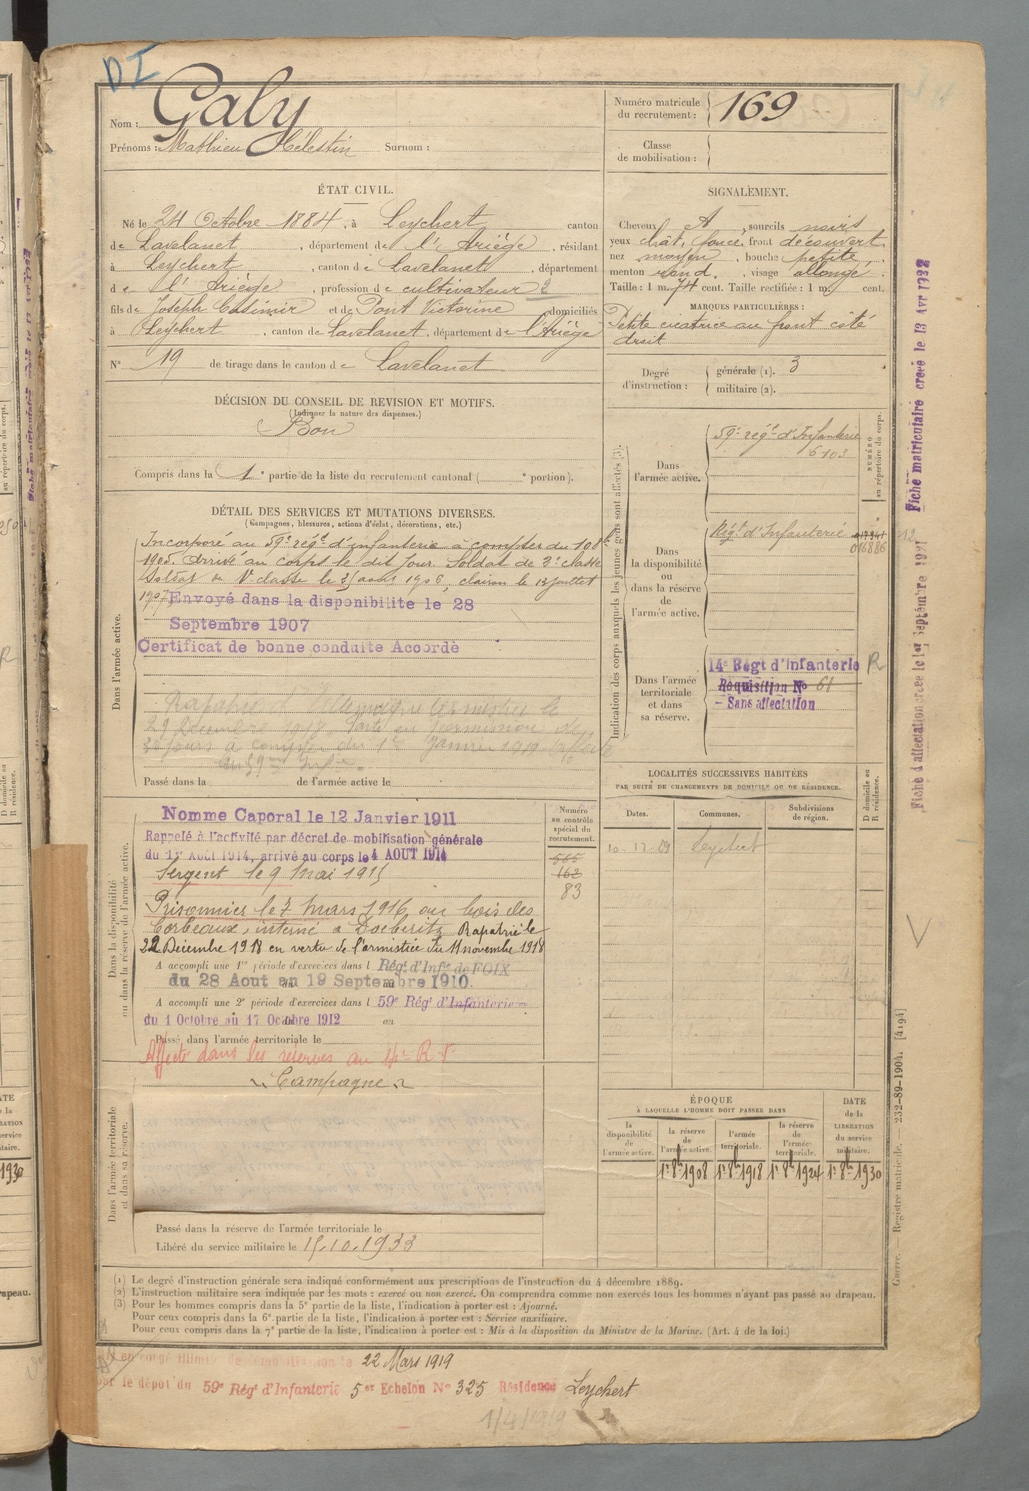 DI
Nom : Galy
Prénoms : Mathieu Célestin Surnom :
Numéro matricule du recrutement : 169
Classe de mobilisation :
ÉTAT CIVIL.
Né le 24 Octobre 1884, à Leychert canton
de Lavelanet, département de l'Ariège, résidant
à Leychert, canton de Lavelanet, département
de l'Ariège, profession de cultivateur 2
fils de Joseph Casimir et de Pont Victorine domiciliés
à Leychert, canton de Lavelanet, département de l'Ariège
N° 19 de tirage dans le canton de Lavelanet
SIGNALEMENT.
Cheveux , sourcils noirs
yeux chât. foncé, front découvert
nez moyen, bouche petite,
menton rond, visage allongé.
Taille : 1 m. 74 cent. Taille rectifiée : 1 m. cent.
MARQUES PARTICULIÈRES :
Petite cicatrice au front côté
droit
Degré d'instruction :
générale (1). 3
militaire (2).
DÉCISION DU CONSEIL DE REVISION ET MOTIFS.
(Indiquer la nature des dispenses.)
Bon
Compris dans la 1e partie de la liste du recrutement cantonal ( e portion).
DÉTAIL DES SERVICES ET MUTATIONS DIVERSES.
(Campagnes, blessures, actions d'éclat, décorations, etc.)
Dans l'armée active.
Incorporé au 59e régt d'infanterie à compter du 10 8bre
1905. Arrivé au corps le dit jour. Soldat de 2e classe
Soldat de 1e classe le 25 août 1906, clairon le 13 juillet
1907 Envoyé dans la disponibilite le 28
Septembre 1907
Certificat de bonne conduite Accordé
29 décembre 1918
30 jours à compter du 1er Janvier 1919
Passé dans la de l'armée active le
Dans la disponibilité ou dans la réserve de l'armée active.
Nomme Caporal le 12 Janvier 1911
Rappelé à l'activité par décret de mobilisation générale
du 1er Aout 1914, arrivé au corps le 4 AOUT 1914
Sergent le 9 mai 1915
Prisonnier le 7 mars 1916 au bois des
Corbeaux, interné à Doeberitz Rapatrié le
22 Décembre 1918 en vertu de l'armistice du 11 novembre 1918
A accompli une 1re période d'exercices dans l Régt d'Infie de FOIX
du 28 Aout au 19 Septembre 1910.
A accompli une 2e période d'exercices dans l 59e Régt d'Infanterie
du 1 Octobre au 17 Octobre 1912 au
Passé dans l'armée territoriale le
Affecté dans les réserves au 14e R.I.
Numéro au contrôle spécial du recrutement.
565
162
83
Dans l'armée territoriale et dans sa réserve.
Campagne
Passé dans la réserve de l'armée territoriale le
Libéré du service militaire le 15.10.1933
Indication des corps auxquels les jeunes gens sont affectés (3).
NUMÉRO au répertoire du corps.
Dans l'armée active.
59e régt d'Infanterie
6103
Dans la disponibilité ou dans la réserve de l'armée active.
Régt d'Infanterie
046886
Dans l'armée territoriale et dans sa réserve.
14e Régt d'Infanterie R
Réquisition No 61
- Sans affectation
LOCALITÉS SUCCESSIVES HABITÉES
PAR SUITE DE CHANGEMENTS DE DOMICILE OU DE RÉSIDENCE.
Dates. Communes. Subdivisions de région. D domicile ou R résidence.
Leychert
ÉPOQUE
À LAQUELLE L'HOMME DOIT PASSER DANS
la disponibilité de l'armée active.
la réserve de l'armée active.
l'armée territoriale.
la réserve de l'armée territoriale.
DATE de la LIBÉRATION du service militaire.
1er 8bre 1908 1er 8bre 1918 1er 8bre 1924 1er 8bre 1930
(1) Le degré d'instruction générale sera indiqué conformément aux prescriptions de l'instruction du 4 décembre 1889.
(2) L'instruction militaire sera indiquée par les mots : exercé ou non exercé. On comprendra comme non exercés tous les hommes n'ayant pas passé au drapeau.
(3) Pour les hommes compris dans la 5e partie de la liste, l'indication à porter est : Ajourné.
Pour ceux compris dans la 6e partie de la liste, l'indication à porter est : Service auxiliaire.
Pour ceux compris dans la 7e partie de la liste, l'indication à porter est : Mis à la disposition du Ministre de la Marine. (Art. 4 de la loi.)
en congé illimité de démobilisation le 22 Mars 1919
par le dépot du 59e Régt d'Infanterie 5er Echelon No 325 Résidence Leychert
Fiche matriculaire créée le 13 Avr 1932
Fiche d'affectation créée le 1er Septembre 1921
Guerre. — Registre matricule. — 232-89-1904. [4194]